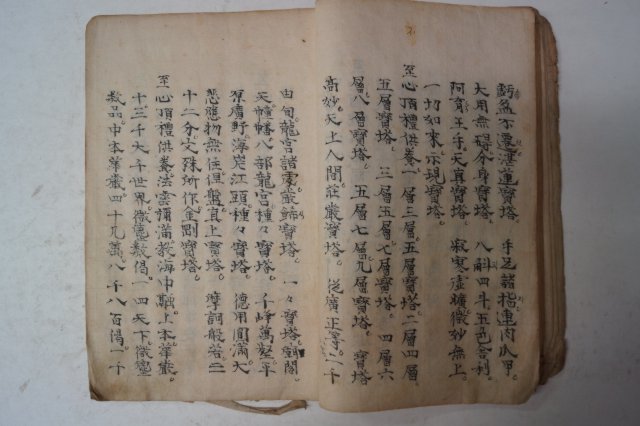 虧盈不遷湛蓮寶塔 手足諸指連肉爪甲
大用無礙分身寶塔 八斛四斗五色舍利
阿育王寺天眞寶塔 寂寒虛曠微妙無上
一切如來示現寶塔
至心頂禮供養一層三層五層寶塔二層四層
五層寶塔 三層五層七層寶塔 四層六
層八層寶塔 五層七層九層寶塔 寶塔
高妙天上人間莊嚴寶塔 從廣正等二千
由旬龍宮諸處嚴飾寶塔 一々寶塔
天幢幡八部龍宮種々寶塔 千峰萬壑平
原廣野海岸江頭種々寶塔 德用圓滿大
悲應物無住涅盤直上寶塔 摩訶般若二
十二分文殊所作金剛寶塔
至心頂禮供養法雲彌滿敎海中融上本華嚴
十三千大千世界微塵數偈一四天下微塵
數品中本華嚴四十九萬八千八百偈一千